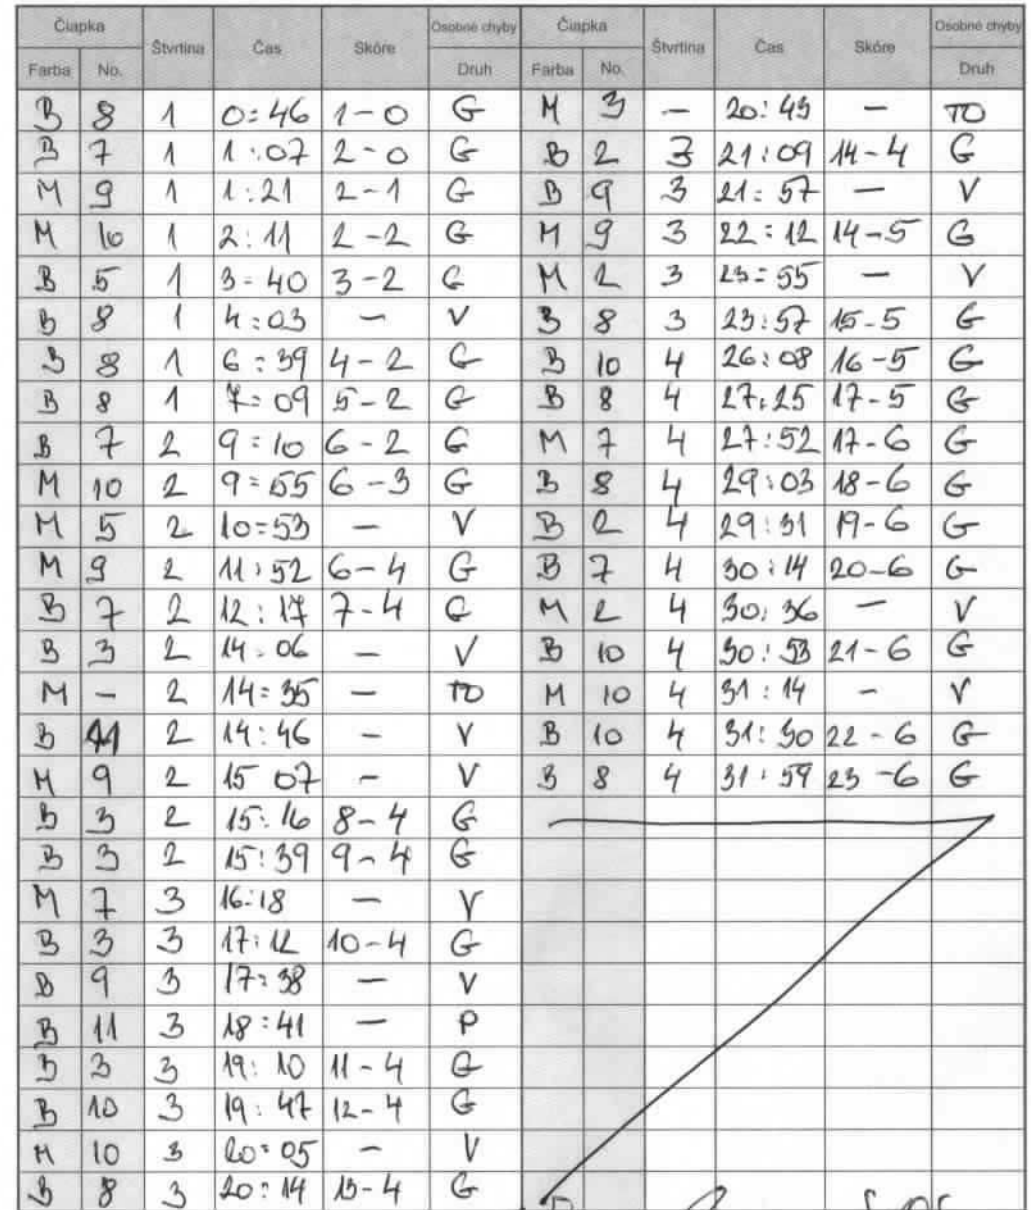 Čiapka Štvrtina Čas Skóre Osobné chyby
Farba No. Druh
B 8 1 0:46 1-0 G
B 7 1 1:07 2-0 G
M 9 1 1:21 2-1 G
M 10 1 2:11 2-2 G
B 5 1 3:40 3-2 G
B 8 1 4:03 - V
B 8 1 6:39 4-2 G
B 8 1 7:09 5-2 G
B 7 2 9:10 6-2 G
M 10 2 9:55 6-3 G
M 5 2 10:53 - V
M 9 2 11:52 6-4 G
B 7 2 12:17 7-4 G
B 3 2 14:06 - V
M - 2 14:35 - TO
B 11 2 14:46 - V
M 9 2 15 07 - V
B 3 2 15:16 8-4 G
B 3 2 15:39 9-4 G
M 7 3 16:18 - V
B 3 3 17:12 10-4 G
B 9 3 17:38 - V
B 11 3 18:41 - P
B 3 3 19:10 11-4 G
B 10 3 19:47 12-4 G
M 10 3 20:05 - V
B 8 3 20:14 13-4 G
Čiapka Štvrtina Čas Skóre Osobné chyby
Farba No. Druh
M 3 - 20:45 - TO
B 2 3 21:09 14-4 G
B 9 3 21:57 - V
M 9 3 22:12 14-5 G
M 2 3 23:55 - V
B 8 3 23:57 15-5 G
B 10 4 26:08 16-5 G
B 8 4 27:25 17-5 G
M 7 4 27:52 17-6 G
B 8 4 29:03 18-6 G
B 2 4 29:31 19-6 G
B 7 4 30:14 20-6 G
M 2 4 30:36 - V
B 10 4 30:53 21-6 G
M 10 4 31:14 - V
B 10 4 31:30 22-6 G
B 8 4 31:59 23-6 G